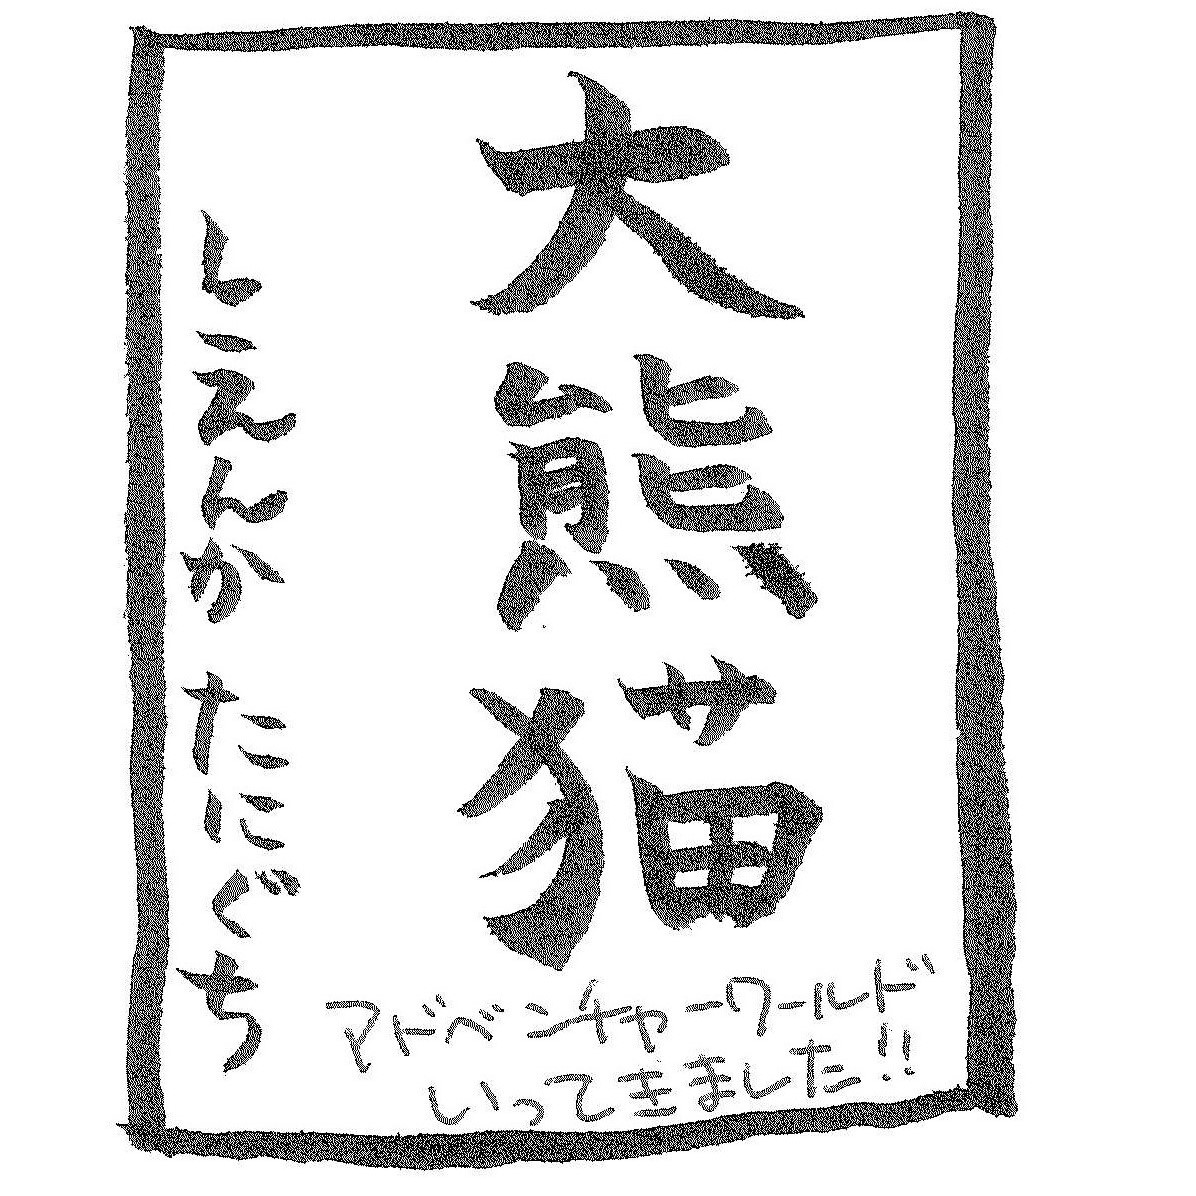 大熊猫
しえんか たにぐち
アドベンチャーワールド
いってきました!!